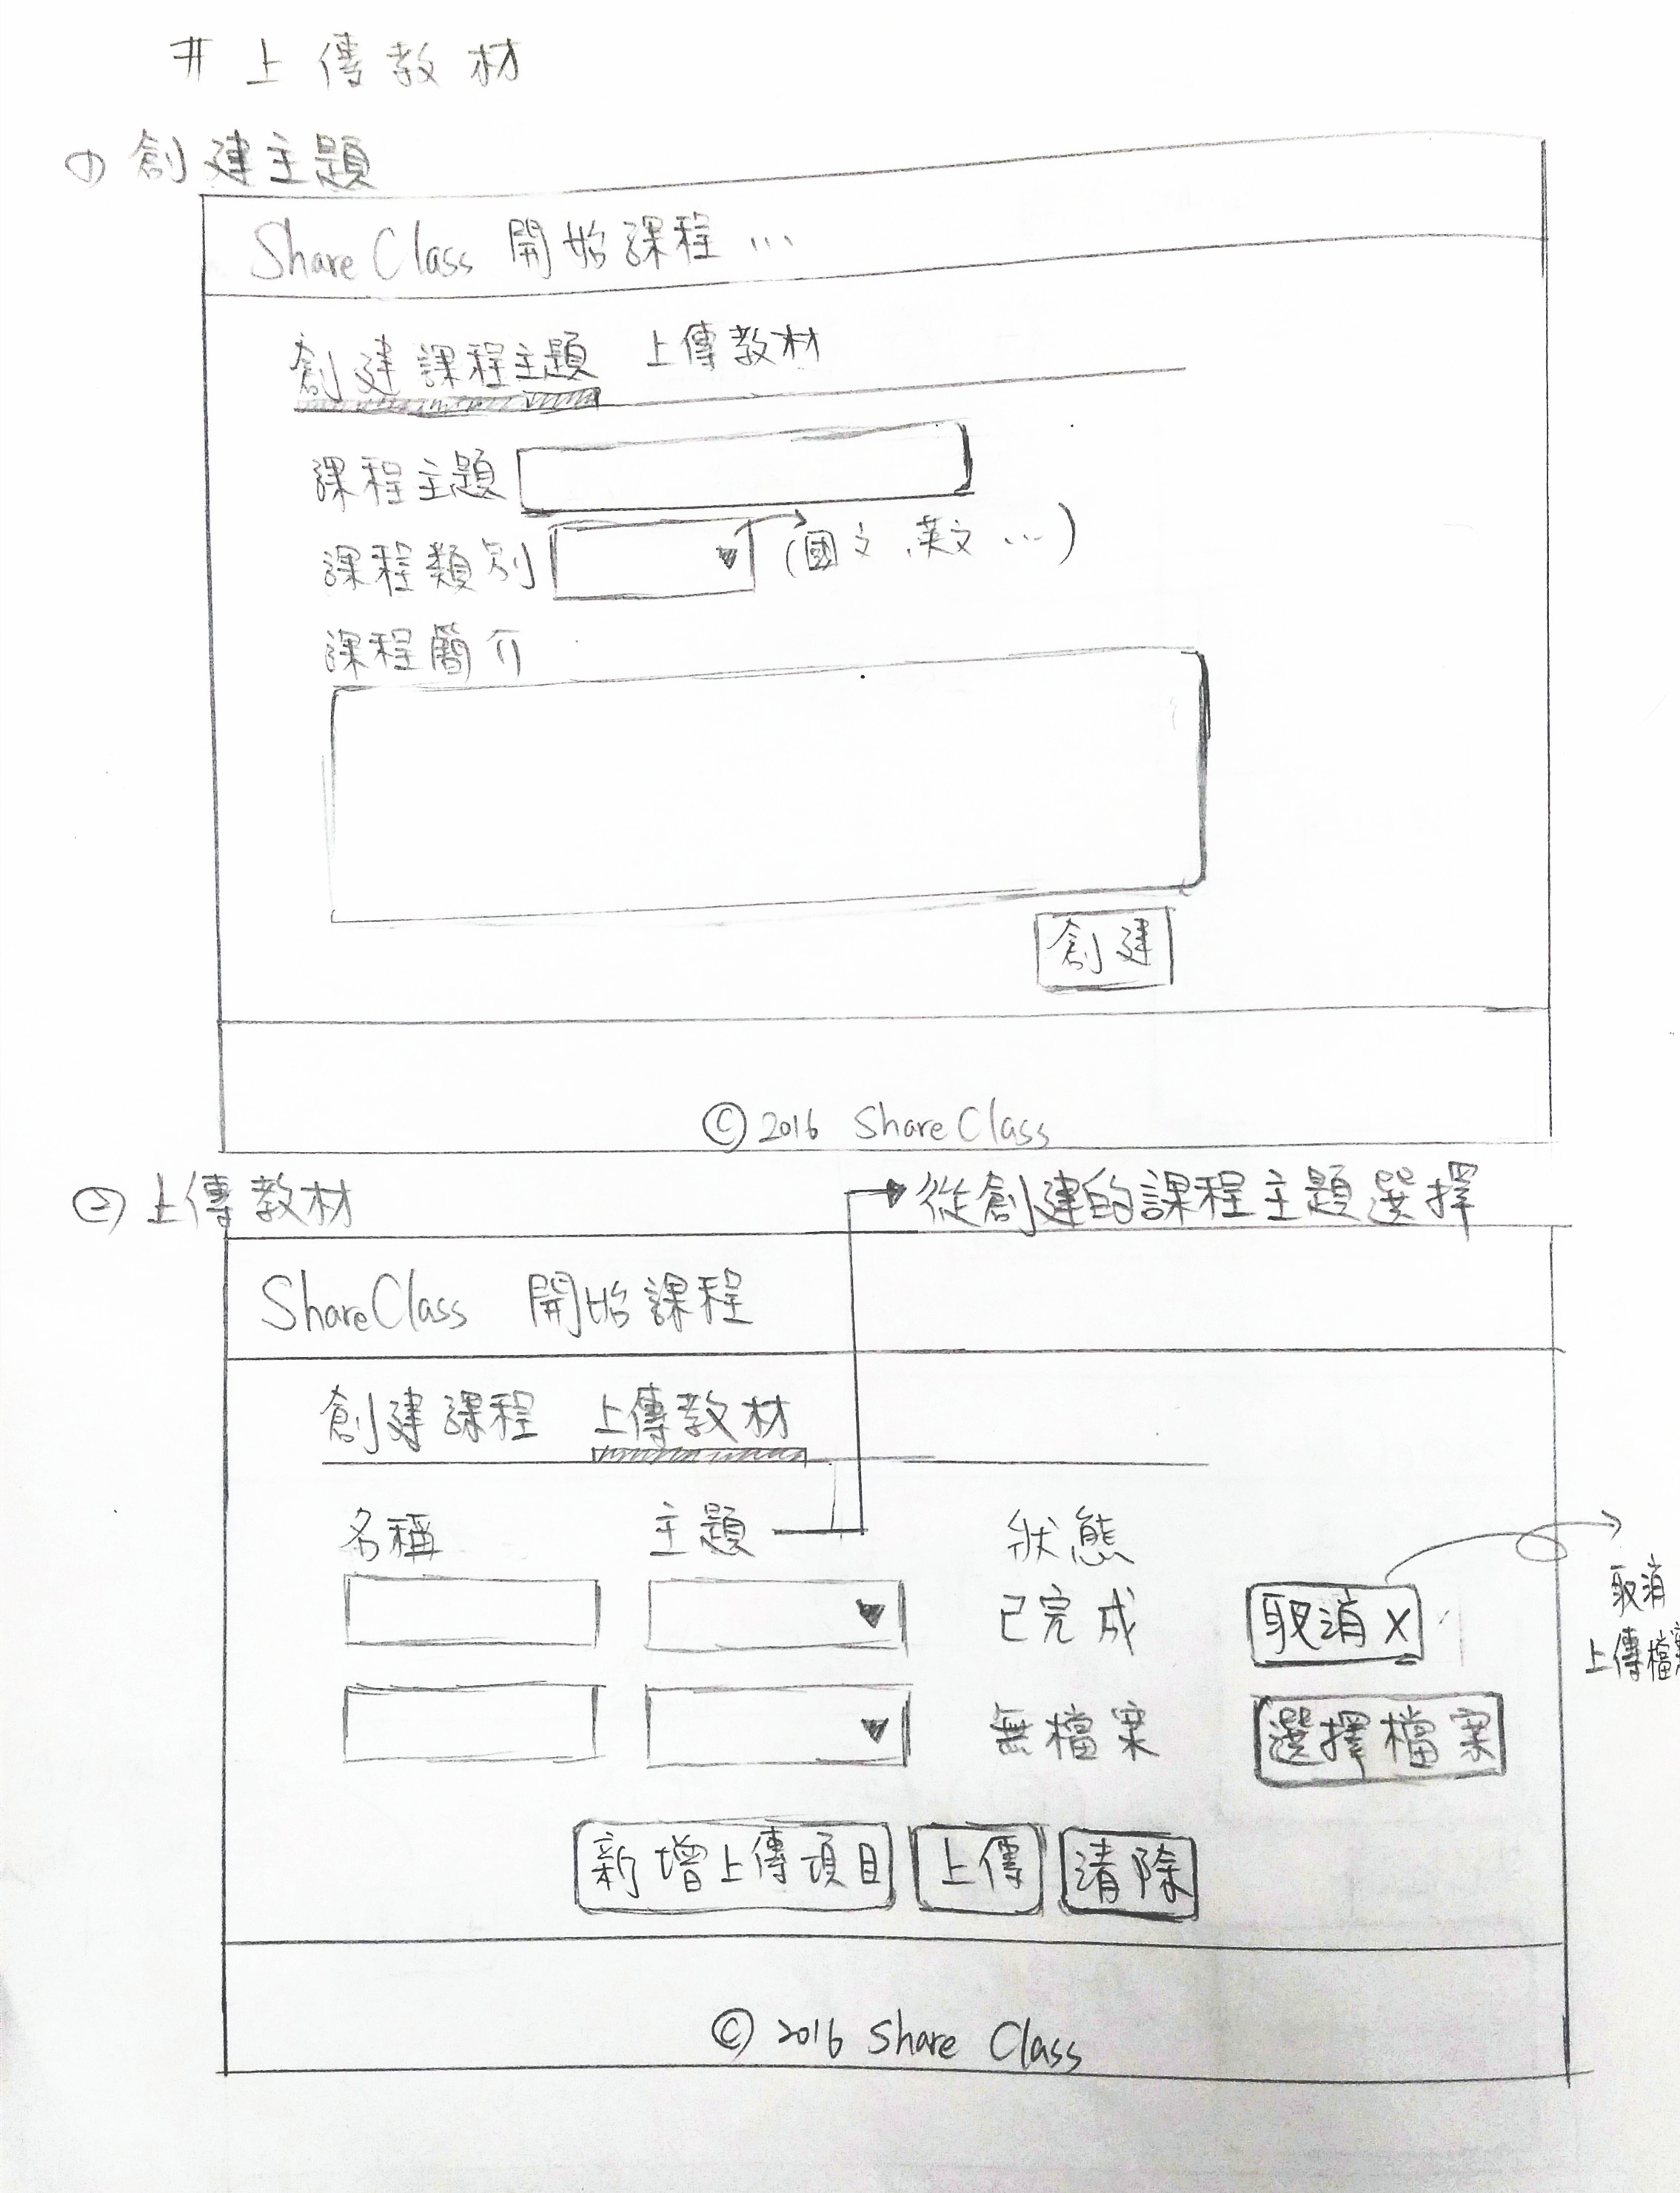 # 上傳教材
① 創建主題
Share Class 開始課程 ...
創建課程主題 上傳教材
課程主題
課程類別 (國文、英文 ...)
課程簡介
創建
© 2016 Share Class
② 上傳教材
從創建的課程主題選擇
ShareClass 開始課程
創建課程 上傳教材
名稱 主題 狀態
已完成 取消 X
取消
上傳檔案
無檔案 選擇檔案
新增上傳項目 上傳 清除
© 2016 Share Class